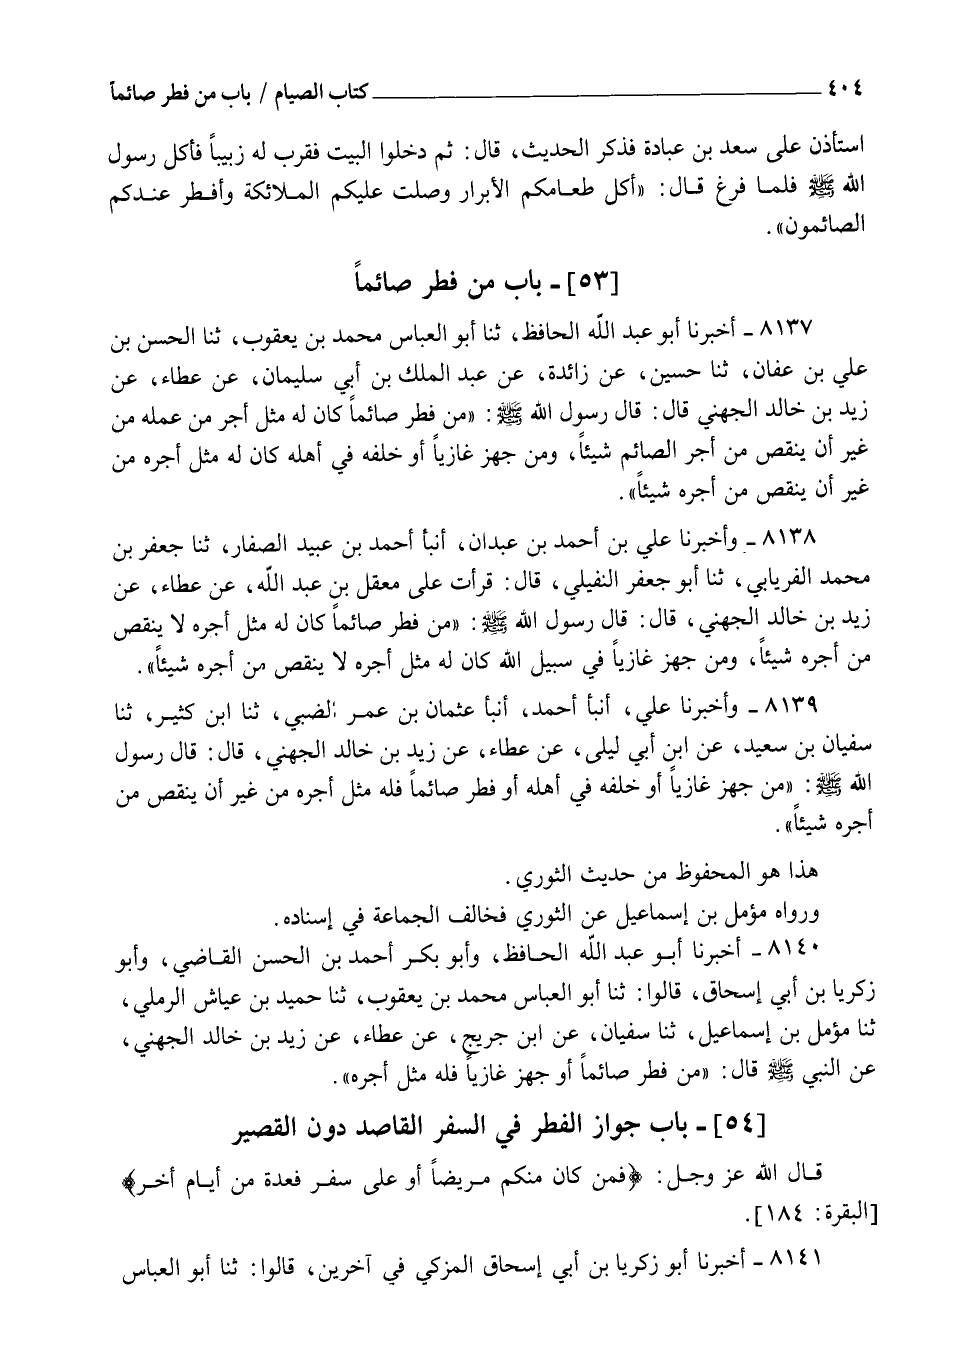 ٤٠٤ ــــــــــــــــــــــــــــــــــــــــ كتاب الصيام / باب من فطر صائماً
استأذن على سعد بن عبادة فذكر الحديث، قال: ثم دخلوا البيت فقرب له زبيباً فأكل رسول
الله ﷺ فلما فرغ قال: «أكل طعامكم الأبرار وصلت عليكم الملائكة وأفطر عندكم
الصائمون».
[٥٣] ـ باب من فطر صائماً
٨١٣٧ ـ أخبرنا أبو عبد اللّه الحافظ، ثنا أبو العباس محمد بن يعقوب، ثنا الحسن بن
علي بن عفان، ثنا حسين، عن زائدة، عن عبد الملك بن أبي سليمان، عن عطاء، عن
زيد بن خالد الجهني قال: قال رسول الله ﷺ: «من فطر صائماً كان له مثل أجر من عمله من
غير أن ينقص من أجر الصائم شيئاً، ومن جهز غازياً أو خلفه في أهله كان له مثل أجره من
غير أن ينقص من أجره شيئاً».
٨١٣٨ ـ وأخبرنا علي بن أحمد بن عبدان، أنبأ أحمد بن عبيد الصفار، ثنا جعفر بن
محمد الفريابي، ثنا أبو جعفر النفيلي، قال: قرأت على معقل بن عبد اللّه، عن عطاء، عن
زيد بن خالد الجهني، قال: قال رسول الله ﷺ: «من فطر صائماً كان له مثل أجره لا ينقص
من أجره شيئاً، ومن جهز غازياً في سبيل الله كان له مثل أجره لا ينقص من أجره شيئاً».
٨١٣٩ ـ وأخبرنا علي، أنبأ أحمد، أنبأ عثمان بن عمر الضبي، ثنا ابن كثير، ثنا
سفيان بن سعيد، عن ابن أبي ليلى، عن عطاء، عن زيد بن خالد الجهني، قال: قال رسول
الله ﷺ: «من جهز غازياً أو خلفه في أهله أو فطر صائماً فله مثل أجره من غير أن ينقص من
أجره شيئاً».
هذا هو المحفوظ من حديث الثوري.
ورواه مؤمل بن إسماعيل عن الثوري فخالف الجماعة في إسناده.
٨١٤٠ ـ أخبرنا أبو عبد اللّه الحافظ، وأبو بكر أحمد بن الحسن القاضي، وأبو
زكريا بن أبي إسحاق، قالوا: ثنا أبو العباس محمد بن يعقوب، ثنا حميد بن عياش الرملي،
ثنا مؤمل بن إسماعيل، ثنا سفيان، عن ابن جريج، عن عطاء، عن زيد بن خالد الجهني،
عن النبي ﷺ قال: «من فطر صائماً أو جهز غازياً فله مثل أجره».
[٥٤] ـ باب جواز الفطر في السفر القاصد دون القصير
قال الله عز وجل: ﴿فمن كان منكم مريضاً أو على سفر فعدة من أيام أخر﴾
[البقرة: ١٨٤].
٨١٤١ ـ أخبرنا أبو زكريا بن أبي إسحاق المزكي في آخرين، قالوا: ثنا أبو العباس